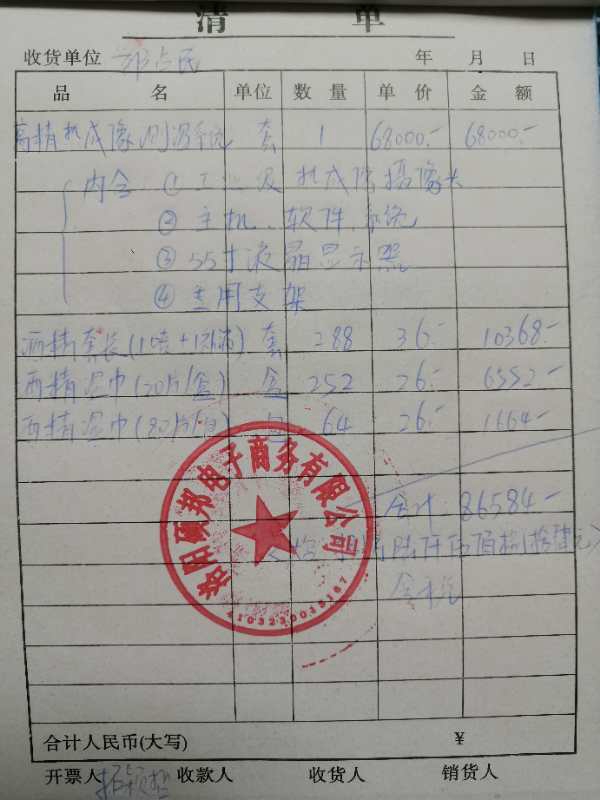 清 单
收货单位 年 月 日
品 名 单位 数 量 单 价 金 额
高精热成像测温系统 套 1 68000.- 68000.-
内含 ①工业级热成像摄像头
②主机、软件、系统
③55寸液晶显示器
④专用支架
酒精套装 套 288 36.- 10368.-
酒精湿巾(20片/盒) 盒 252 26.- 6552.-
酒精湿巾(80片/包) 包 64 26.- 1664.-
合计:86584.-
含税
洛阳硕邦电子商务有限公司
合计人民币(大写) ¥
开票人 收款人 收货人 销货人